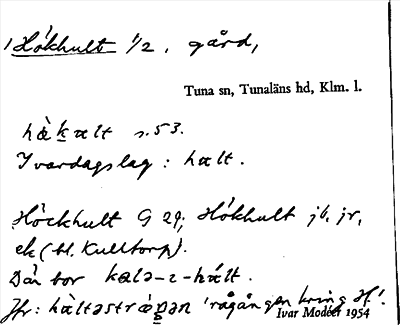 Hökhult 1/2, gård,
Tuna sn, Tunaläns hd, Klm. l.
hø̀kælt s. 53.
I vardagslag: hælt.
Höckhult G 29; Hökhult jb, jr,
ek (bl. Kulltorp).
Där bor kalə-i-hælt.
Jfr: hæ̀ltəstræpən 'rågången kring H.'
Ivar Modéer 1954